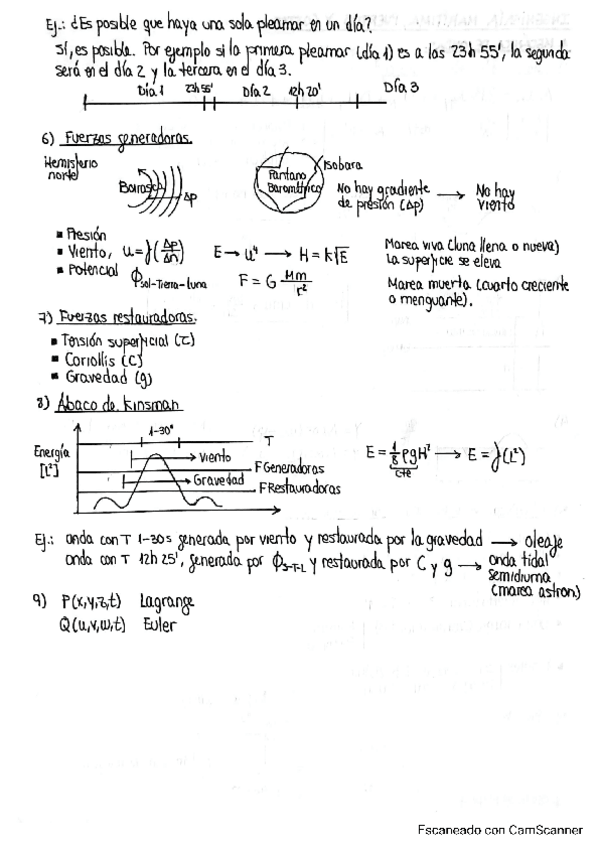 Ej.: ¿Es posible que haya una sola pleamar en un día?
Sí, es posible. Por ejemplo si la primera pleamar (día 1) es a las 23h 55', la segunda
será en el día 2 y la tercera en el día 3.
Día 1 23h 55' Día 2 12h 20' Día 3
6) Fuerzas generadoras.
Hemisferio
norte
Borrasca
Δp
Pantano
Barométrico
Isobara
No hay gradiente
de presión (Δp) → No hay
viento
▪ Presión
▪ Viento, u = f(Δp/Δn) E → u⁴ → H = k√E
▪ Potencial ϕsol-Tierra-luna F = G Mm/r²
Marea viva (luna llena o nueva)
La superficie se eleva
Marea muerta (cuarto creciente
o menguante).
7) Fuerzas restauradoras.
▪ Tensión superficial (τ)
▪ Coriollis (C)
▪ Gravedad (g)
8) Ábaco de Kinsman
Energía
[L²]
1-30"
T
Viento
F Generadoras
Gravedad
F Restauradoras
E = 1/8 ρgH² → E = f(L²)
cte
Ej.: onda con T 1-30s generada por viento y restaurada por la gravedad → oleaje
onda con T 12h 25', generada por ϕS-T-L y restaurada por C y g → onda tidal
semidiurna
(marea astron.)
9) P(x,y,z,t) Lagrange
Q(u,v,w,t) Euler
Escaneado con CamScanner